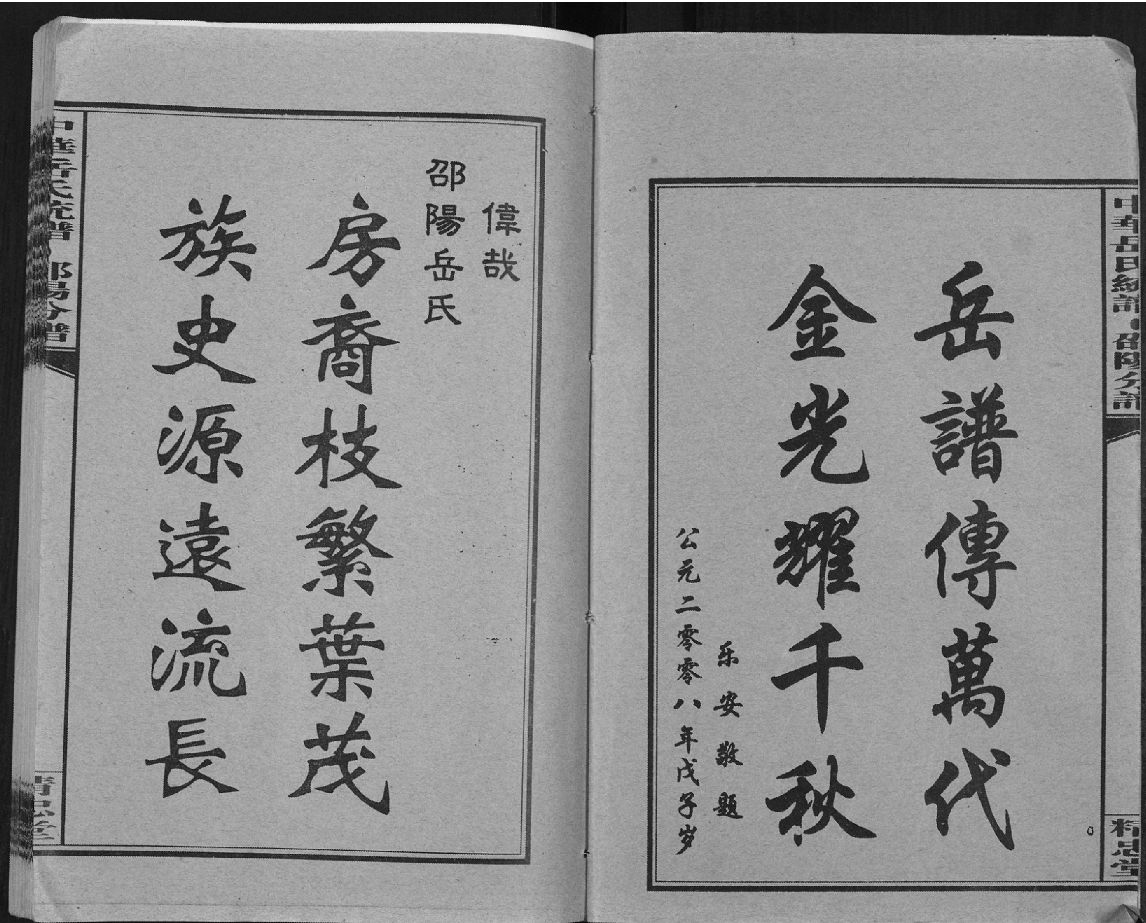 中華岳氏統譜·邵陽分譜
精忠堂
岳譜傳萬代
金光耀千秋
乐安敬题
公元二零零八年戊子岁
偉哉
邵陽岳氏
房裔枝繁葉茂
族史源遠流長
中華岳氏統譜·邵陽分譜
精忠堂